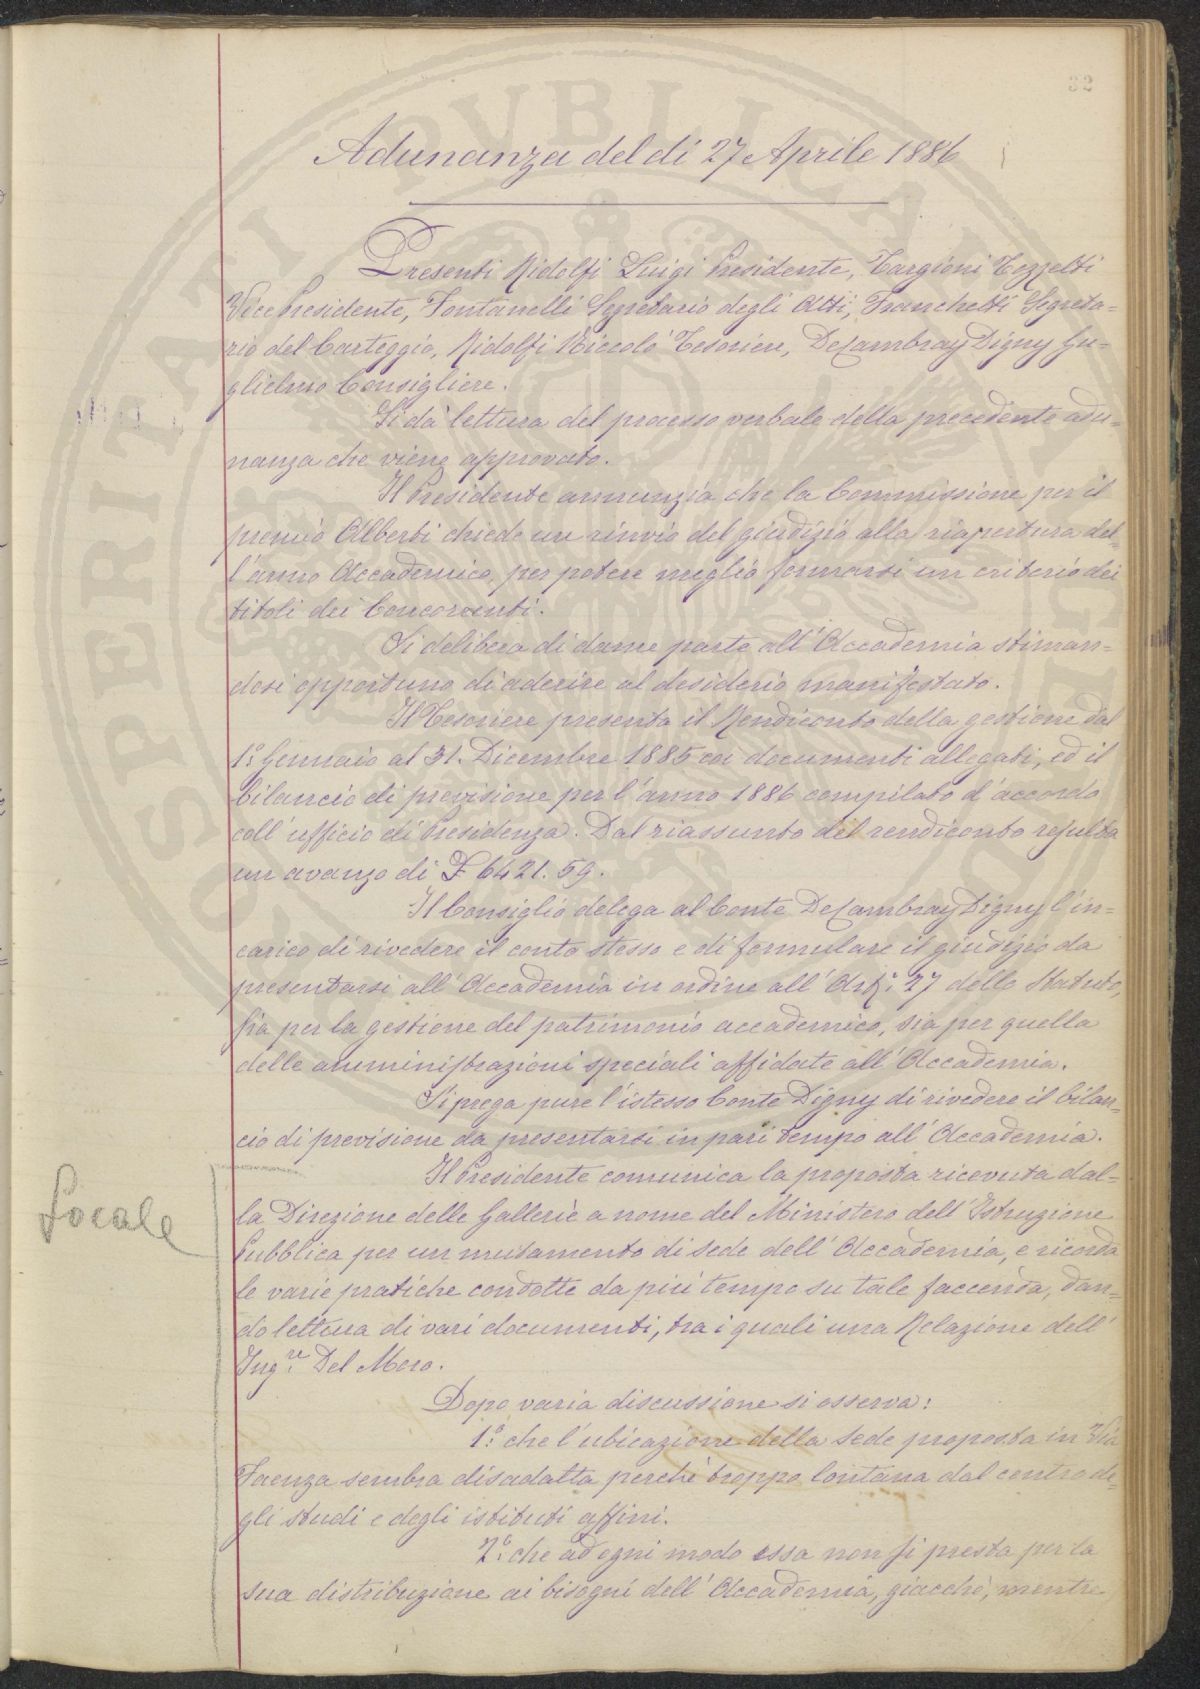 32
Adunanza del dì 27 Aprile 1886
Presenti Ridolfi Luigi Presidente, Targioni Tozzetti
Vice Presidente, Fontanelli Segretario degli Atti, Franchetti Segreta=
rio del Carteggio, Ridolfi Niccolò Tesoriere, DeCambray Digny Gu=
glielmo Consigliere.
Si dà lettura del processo verbale della precedente adu=
nanza che viene approvato.
Il Presidente annunzia che la Commissione per il
premio Alberti chiede un rinvio del giudizio alla riapertura del=
l'anno Accademico, per potere meglio formarsi un criterio dei
titoli dei Concorrenti.
Si delibera di darne parte all'Accademia stiman=
dosi opportuno di aderire al desiderio manifestato.
Il Tesoriere presenta il Rendiconto della gestione dal
1° Gennaio al 31. Dicembre 1885 coi documenti allegati, ed il
bilancio di previsione per l'anno 1886 compilato d'accordo
coll'ufficio di Presidenza. Dal riassunto del rendiconto resulta
un avanzo di £ 6421.59.
Il Consiglio delega al Conte DeCambray Digny l'in=
carico di rivedere il conto stesso e di formulare il giudizio da
presentarsi all'Accademia in ordine all'Art.° 27 dello Statuto,
sia per la gestione del patrimonio accademico, sia per quella
delle amministrazioni speciali affidate all'Accademia.
Si prega pure l'istesso Conte Digny di rivedere il bilan=
cio di previsione da presentarsi in pari tempo all'Accademia.
Il Presidente comunica la proposta ricevuta dal=
Locale
la Direzione delle Gallerie a nome del Ministero dell'Istruzione
Pubblica per un mutamento di sede dell'Accademia, e ricorda
le varie pratiche condotte da più tempo su tale faccenda, dan=
do lettura di vari documenti, tra i quali una Relazione dell'
Ing.re Del Moro.
Dopo varia discussione si osserva:
1.° che l'ubicazione della sede proposta in Via
Faenza sembra disadatta perchè troppo lontana dal centro de=
gli studi e degli istituti affini.
2.° che ad ogni modo essa non si presta per la
sua distribuzione ai bisogni dell'Accademia, giacchè, mentre